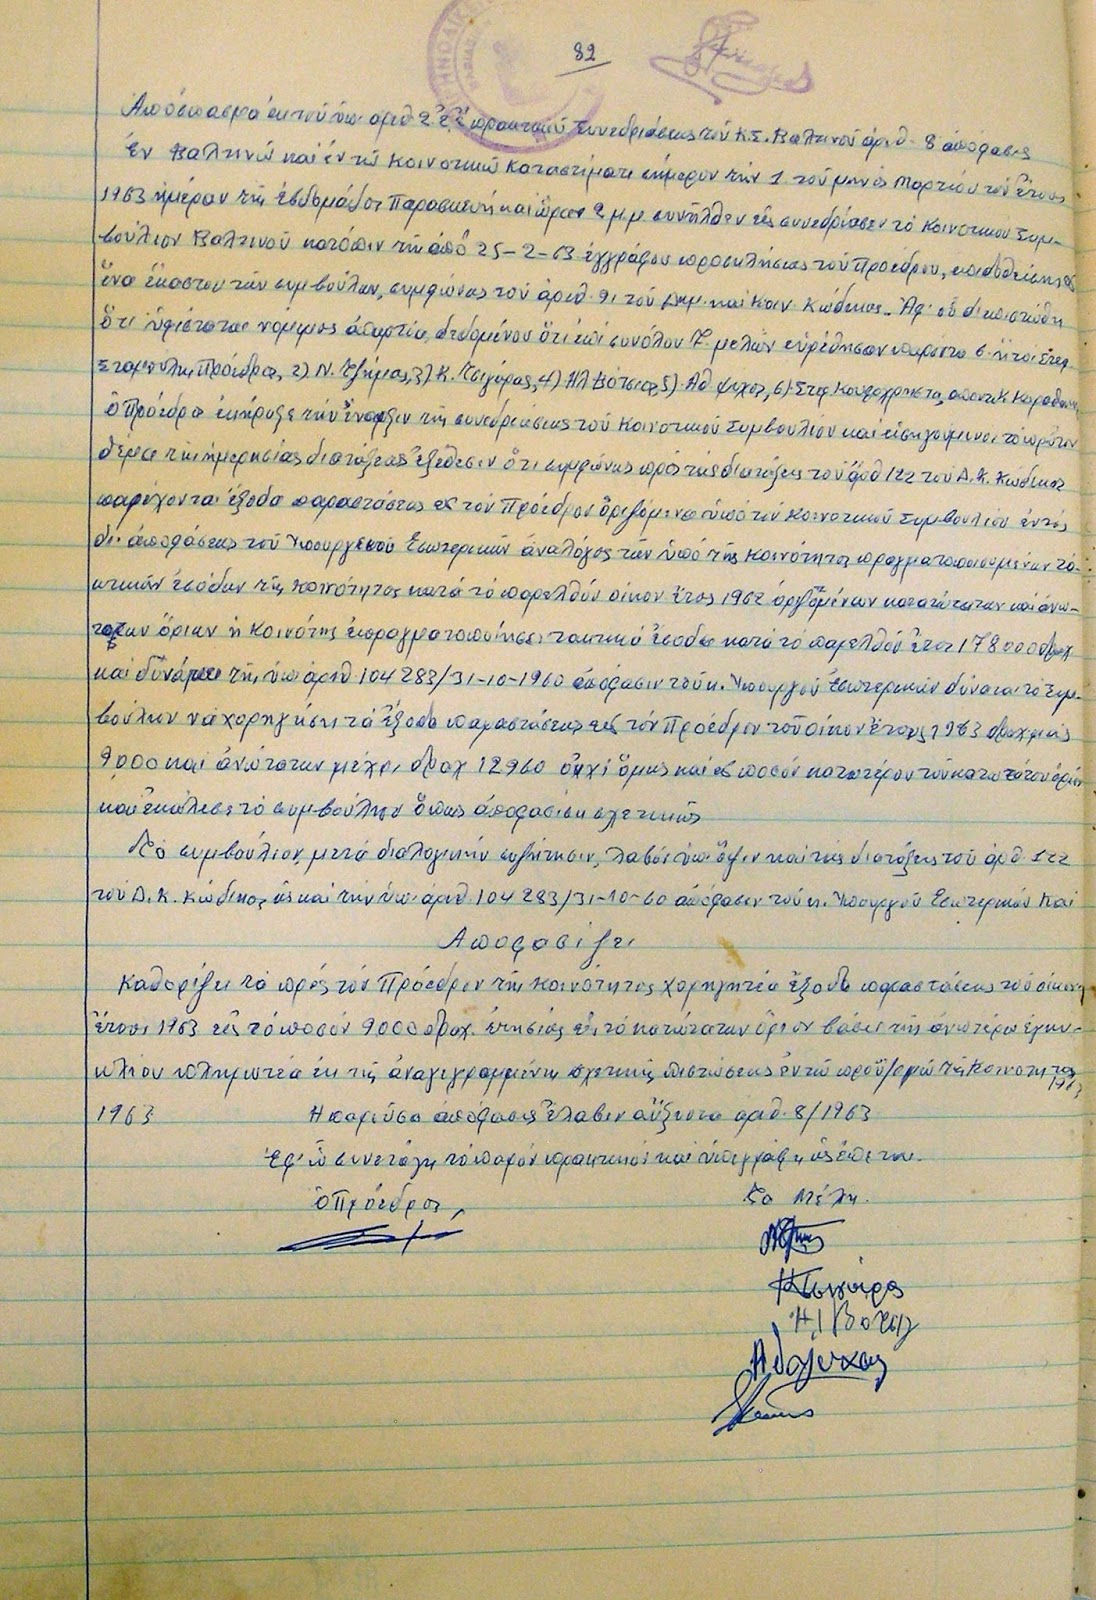 82
Ἀπόσπασμα ἐκ τοῦ ὑπ' ἀριθ 2 πρακτικοῦ Συνεδριάσεως τοῦ Κ.Σ. Βαλτινοῦ ἀριθ. 8 ἀπόφασις
Ἐν Βαλτινῷ καί ἐν τῷ Κοινοτικῷ Καταστήματι σήμερον τήν 1 τοῦ μηνός Μαρτίου τοῦ ἔτους
1963 ἡμέραν τῆς ἑβδομάδος Παρασκευή καί ὥραν 2 μ.μ συνῆλθεν εἰς συνεδρίασιν τό Κοινοτικόν Συμ-
βούλιον Βαλτινοῦ κατόπιν τῆς ἀπό 25-2-63 ἐγγράφου προσκλήσεως τοῦ Προέδρου, ἐπιδοθείσης
ἕνα ἕκαστον τῶν συμβούλων, συμφώνως τοῦ ἀριθ. 91 τοῦ Δημ. καί Κοιν. Κώδικος. Ἀφ' οὗ διεπιστώθη
ὅτι ὑφίσταται νόμιμος ἀπαρτία, δεδομένου ὅτι ἐπί συνόλου 7 μελῶν εὑρέθησαν παρόντα 6 ἤτοι Στεφ
Σταμούλης Πρόεδρος, 2) Ν. Τζήμας, 3) Κ. Τσιγάρας, 4) Ηλ Βότσιος, 5) Αθ Ψύχος, 6) Στεφ
ὁ Πρόεδρος ἐκήρυξε τήν ἔναρξιν τῆς συνεδριάσεως τοῦ Κοινοτικοῦ Συμβουλίου καί εἰσηγούμενος τό πρῶτον
θέμα τῆς ἡμερησίας διατάξεως ἐξέθεσεν ὅτι συμφώνως πρός τάς διατάξεις τοῦ ἀρθ 122 τοῦ Δ. Κ. Κώδικος
παρέχονται ἔξοδα παραστάσεως εἰς τόν Πρόεδρον ὁριζόμενα ὑπό τοῦ Κοινοτικοῦ Συμβουλίου ἐντός
δι' ἀποφάσεως τοῦ Ὑπουργείου Ἐσωτερικῶν ἀναλόγως τῶν ὑπό τῆς Κοινότητος πραγματοποιουμένων τα-
κτικῶν ἐσόδων τῆς Κοινότητος κατά τό παρελθόν οἰκον ἔτος 1962 ὁριζομένων κατωτάτων καί ἀνω-
τάτων ὁρίων ἡ Κοινότης ἐπραγματοποίησε τακτικά ἔσοδα κατά τό παρελθόν ἔτος 178000 δραχ
καί δυνάμει τῆς ὑπ' ἀριθ 104283/31-10-1960 ἀπόφασιν τοῦ κ. Ὑπουργοῦ Ἐσωτερικῶν δύναται τό Συμ-
βούλιον νά χορηγήσῃ τά ἔξοδα παραστάσεως εἰς τόν Πρόεδρον τοῦ οἰκον ἔτους 1963 δραχμάς
9.000 καί ἀνώτατον μέχρι δραχ 12960 ὄχι ὅμως καί εἰς ποσόν κατώτερον τοῦ κατωτάτου ὁρίου
καί ἐκάλεσε τό συμβούλιον ὅπως ἀποφασίσῃ σχετικῶς
Τό συμβούλιον μετά διαλογικήν συζήτησιν, λαβόν ὑπ' ὄψιν καί τάς διατάξεις τοῦ ἀρθ. 122
τοῦ Δ. Κ. Κώδικος ὡς καί τήν ὑπ' ἀριθ 104283/31-10-60 ἀπόφασιν τοῦ κ. Ὑπουργοῦ Ἐσωτερικῶν καί
Ἀποφασίζει
Καθορίζει τά πρός τόν Πρόεδρον τῆς Κοινότητος χορηγητέα ἔξοδα παραστάσεως τοῦ οἰκον
ἔτους 1963 εἰς τό ποσόν 9000 δραχ. ἐτησίως εἰς τό κατώτατον ὅριον βάσει τῆς ἀνωτέρω ἐγκυ-
κλίου πληρωτέα ἐκ τῆς ἀναγεγραμμένης σχετικῆς πιστώσεως ἐν τῷ προϋ/σμῷ τῆς Κοινότητος 1963
1963 Ἡ παροῦσα ἀπόφασις ἔλαβεν αὔξοντα ἀριθ. 8/1963
Ἐφ' ᾧ συνετάγη τό παρόν πρακτικόν καί ὑπεγράφη ὡς ἕπεται.
Ὁ Πρόεδρος Τα Μέλη.
Κ Τσιγάρας
Ηλ Βότσης
Αθ Ψύχος